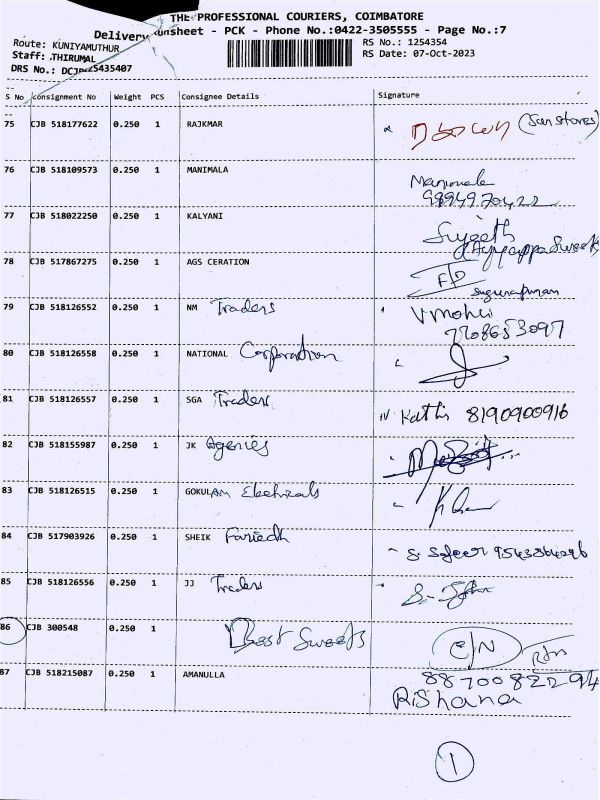 THE PROFESSIONAL COURIERS, COIMBATORE
Delivery Runsheet - PCK - Phone No.:0422-3505555 - Page No.:7
Route: KUNIYAMUTHUR
RS No.: 1254354
Staff: THIRUMAL
RS Date: 07-Oct-2023
DRS No.: 25435407
S No Consignment No Weight PCS Consignee Details Signature
75 CJB 518177622 0.250 1 RAJKMAR (San stores)
76 CJB 518109573 0.250 1 MANIMALA Manimala
9994970422
77 CJB 518022250 0.250 1 KALYANI Sujeeth
Ayyappa Sweets
78 CJB 517867275 0.250 1 AGS CERATION F/D
79 CJB 518126552 0.250 1 NM Traders V Mohan
7708653097
80 CJB 518126558 0.250 1 NATIONAL Corporation
81 CJB 518126557 0.250 1 SGA Traders Kathi 8190900916
82 CJB 518155987 0.250 1 JK Agencies
83 CJB 518126515 0.250 1 GOKULAM Electricals
84 CJB 517903926 0.250 1 SHEIK Fariedh S. Safeer
85 CJB 518126556 0.250 1 JJ Traders S. John
86 CJB 300548 0.250 1 Best Sweets C/N
87 CJB 518215087 0.250 1 AMANULLA
Rishana
1